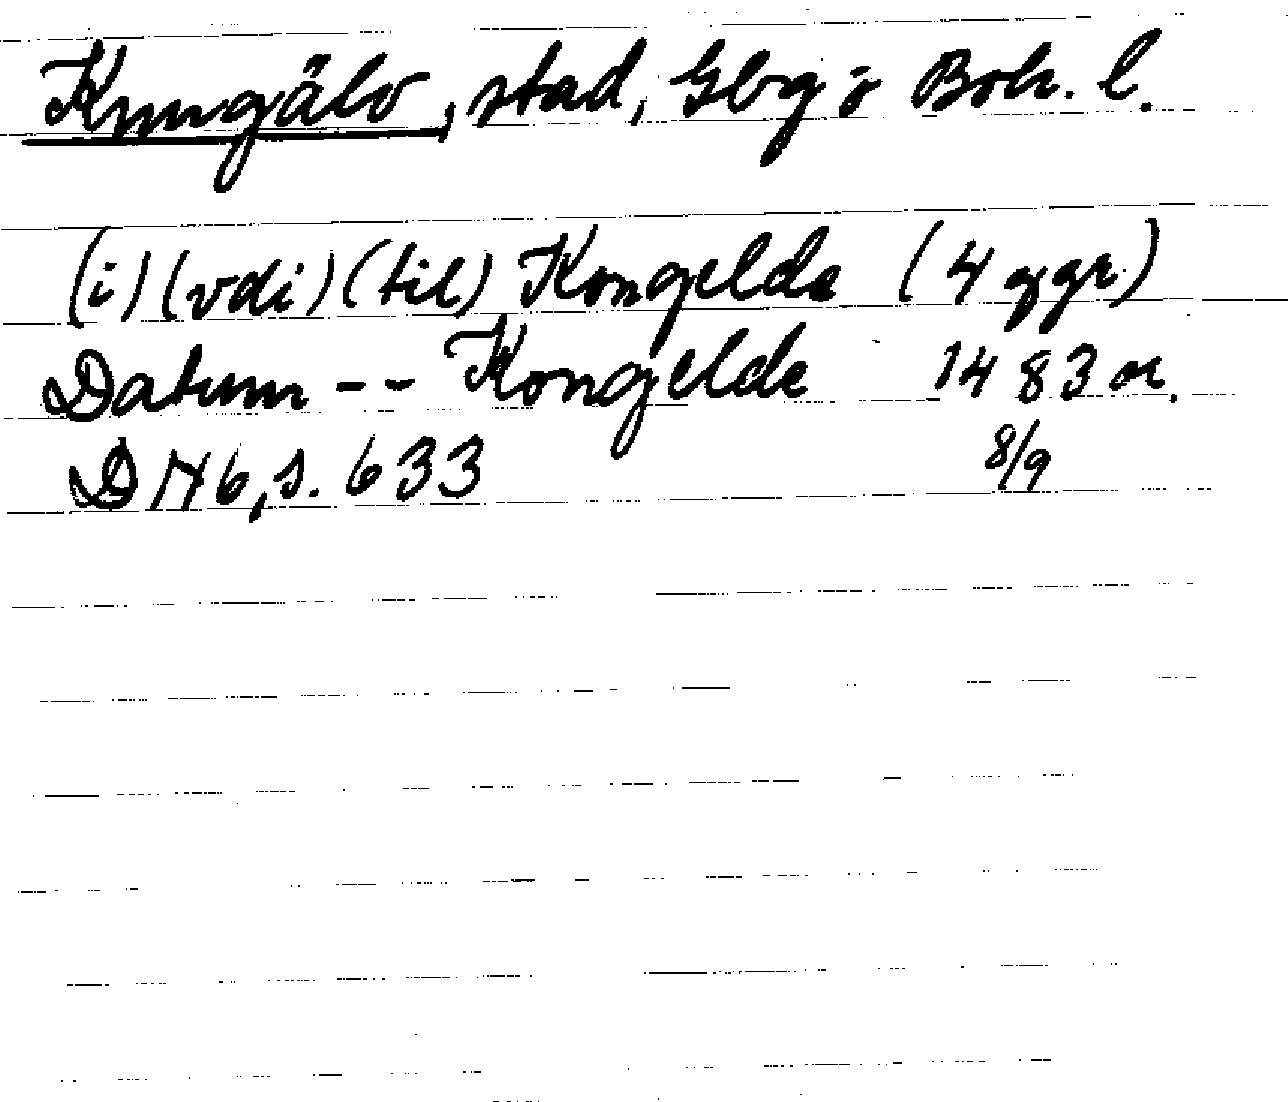 Kungälv, stad, Gbg o Boh. l.
(i) (vdi) (til) Kongelde (4 ggr)
Datum -- Kongelde 1483 or.
DN 6, s. 633 8/9